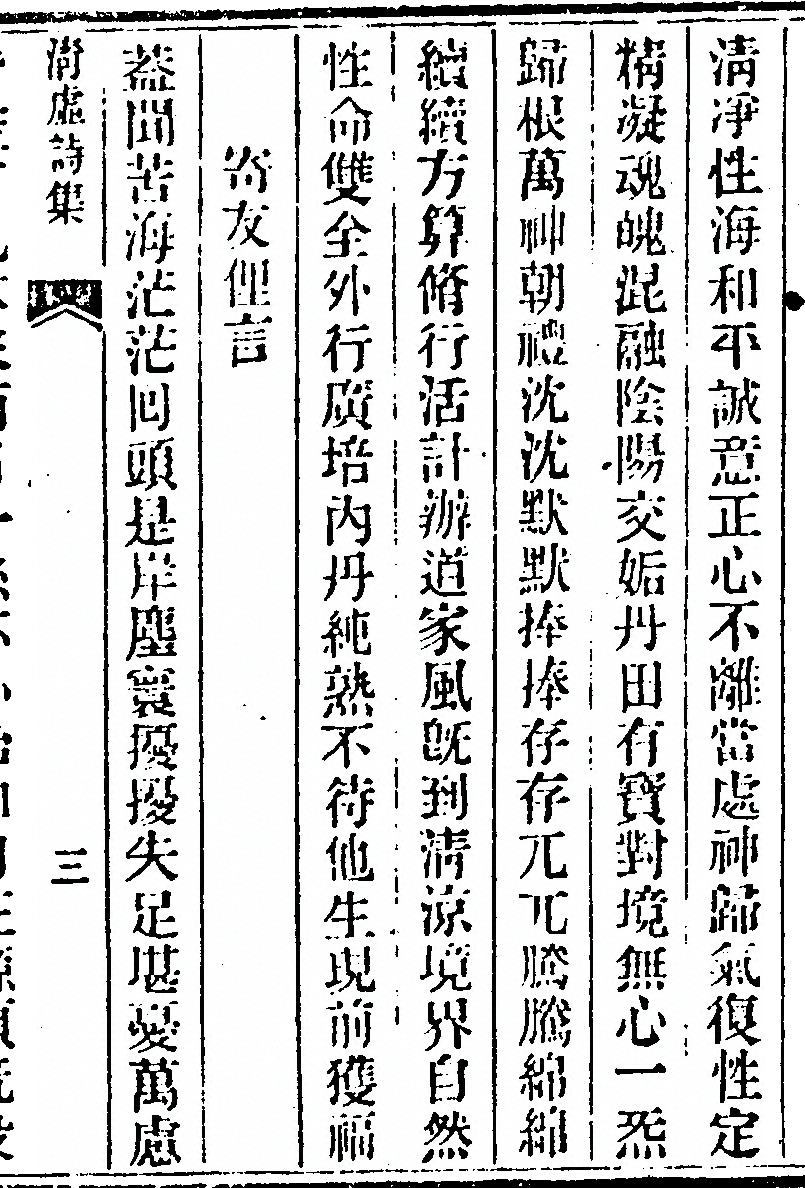 清淨性海和平誠意正心不離當處神歸氣復性定
精凝魂魄混融陰陽交姤丹田有寶對境無心一炁
歸根萬神朝禮沈沈默默捧捧存存兀兀騰騰綿綿
續續方算脩行活計辦道家風旣到清涼境界自然
性命雙全外行廣培內丹純熟不待他生現前獲福
寄友俚言
蓋聞苦海茫茫回頭是岸塵寰擾擾失足堪憂萬慮
虛詩集
三